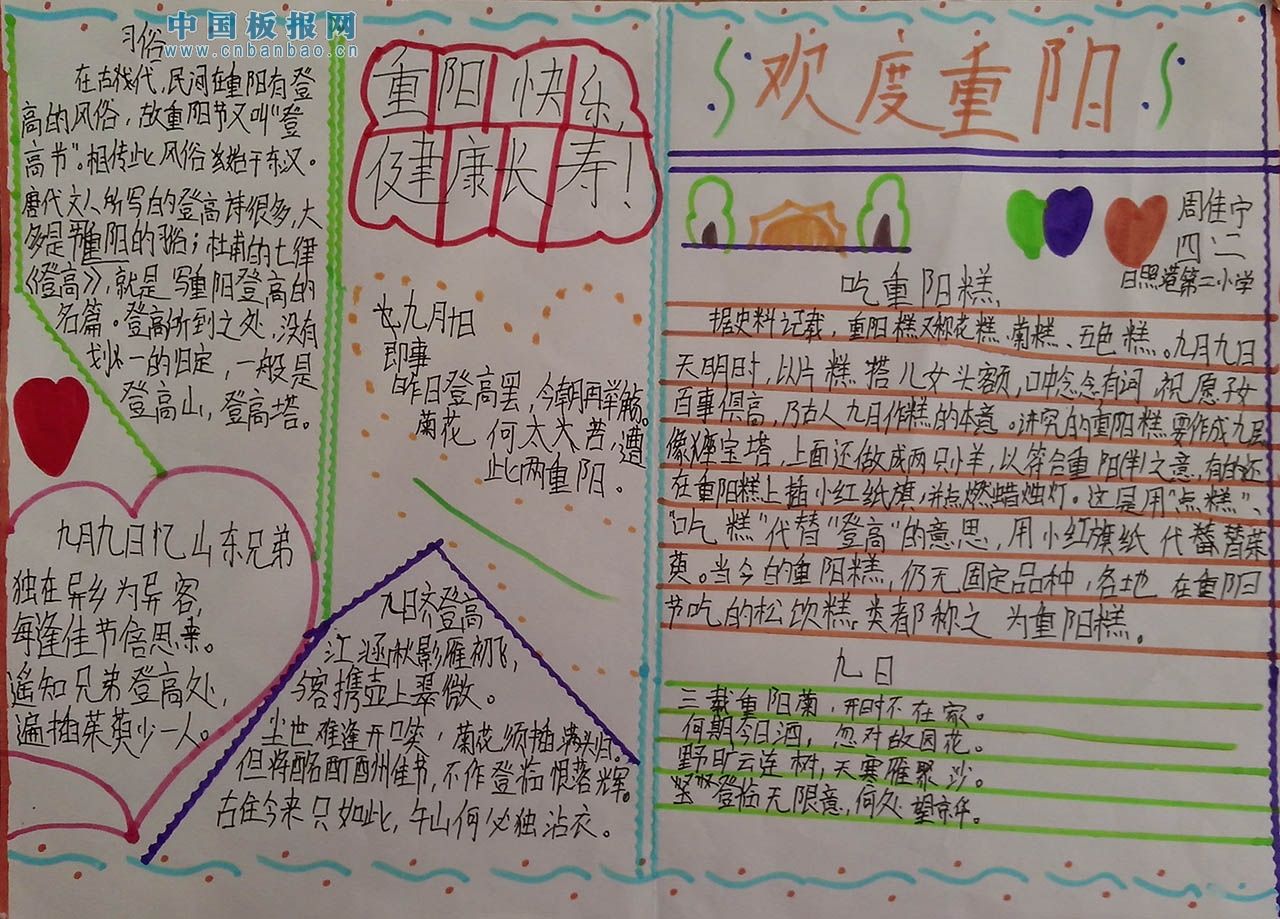 中国板报网
www.cnbanbao.cn
习俗
在古代,民间在重阳有登
高的风俗,故重阳节又叫"登
高节"。相传此风俗始于东汉。
唐代文人所写的登高诗很多,大
多是重阳的习俗;杜甫的七律
《登高》,就是写重阳登高的
名篇。登高所到之处,没有
划一的归定,一般是
登高山,登高塔。
九月九日忆山东兄弟
独在异乡为异客,
每逢佳节倍思亲。
遥知兄弟登高处,
遍插茱萸少一人。
重阳快乐,
健康长寿!
九月十日
即事
昨日登高罢,今朝再举觞。
菊花何太大苦,遭
此两重阳。
九日齐登高
江涵秋影雁初飞,
与客携壶上翠微。
尘世难逢开口笑,菊花须插满头归。
但将酩酊酬佳节,不作登临恨落辉。
古住今来只如此,牛山何必独沾衣。
欢度重阳
周佳宁
四·二
日照港第二小学
吃重阳糕
据史料记载,重阳糕又称花糕、菊糕、五色糕。九月九日
天明时,以片糕搭儿女头额,口中念念有词,祝愿子女
百事俱高,乃古人九日作糕的本意。讲究的重阳糕要作成九层
像宝塔,上面还做成两只小羊,以符合重阳(羊)之意。有的还
在重阳糕上插小红纸旗,并点燃蜡烛灯。这是用"点糕"、
"吃糕"代替"登高"的意思,用小红旗纸代替茱
萸。当今的重阳糕,仍无固定品种,各地在重阳
节吃的松饮糕类都称之为重阳糕。
九日
三载重阳菊,开时不在家。
何期今日酒,忽对故园花。
野旷云连树,天寒雁聚沙。
登临无限意,何处望京华。